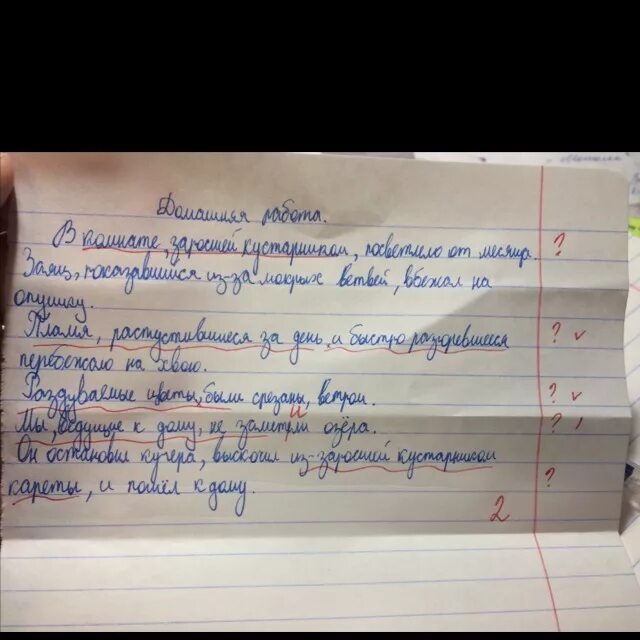 Домашняя работа.
В комнате, заросшей кустарником, посветлело от месяца. ?
Заяц, показавшийся из-за мокрых ветвей, вбежал на
опушку.
Пламя, распустившиеся за день, и быстро разгоревшееся ? v
перебежало на хвою.
Раздуваемые цветы, были срезаны, ветром. ? v
и
Мы, ведущие к дому, не заметели озёра. ? /
Он остановил кучера, выскочил из-заросшей кустарником
кареты, и пошёл к дому. ?
2